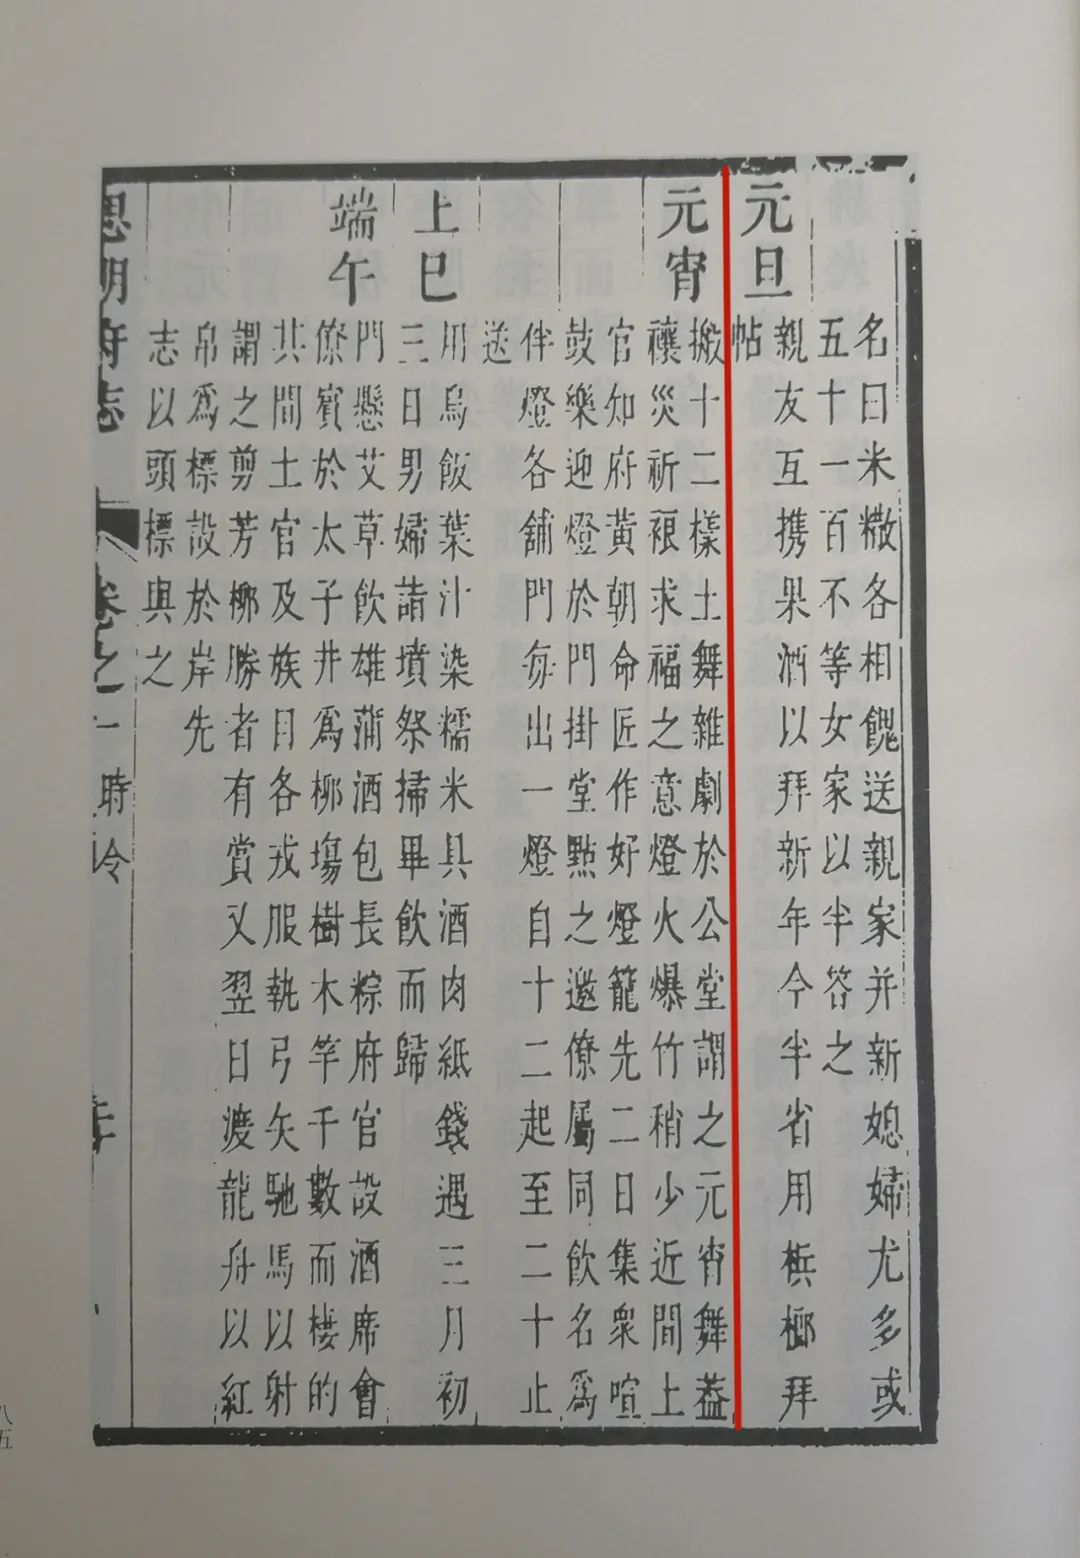 名曰米糤各相餽送親家并新媳婦尤多或
五十一百不等女家以半答之
元旦
親友互携果酒以拜新年今半省用檳榔拜
帖
元宵
搬十二樣土舞雜劇於公堂謂之元宵舞葢
禳災祈禐求福之意燈火爆竹稍少近間上
官知府黄朝命匠作好燈籠先二日集衆喧
鼓樂迎燈於門掛堂點之邀僚屬同飲名爲
伴燈各舖門毎出一燈自十二起至二十止
送
上巳
用烏飯葉汁染糯米具酒肉紙錢遇三月初
三日男婦詣墳祭掃畢飲而歸
端午
門懸艾草飲雄蒲酒包長粽府官設酒席會
僚賓於太子井爲柳塲樹木竿千數而棲的
其間土官及族目各戎服執弓矢馳馬以射
謂之剪芳柳勝者有賞又翌日渡龍舟以紅
帛爲標設於岸先
志以頭標與之
思明府志
卷之一
時令
八五